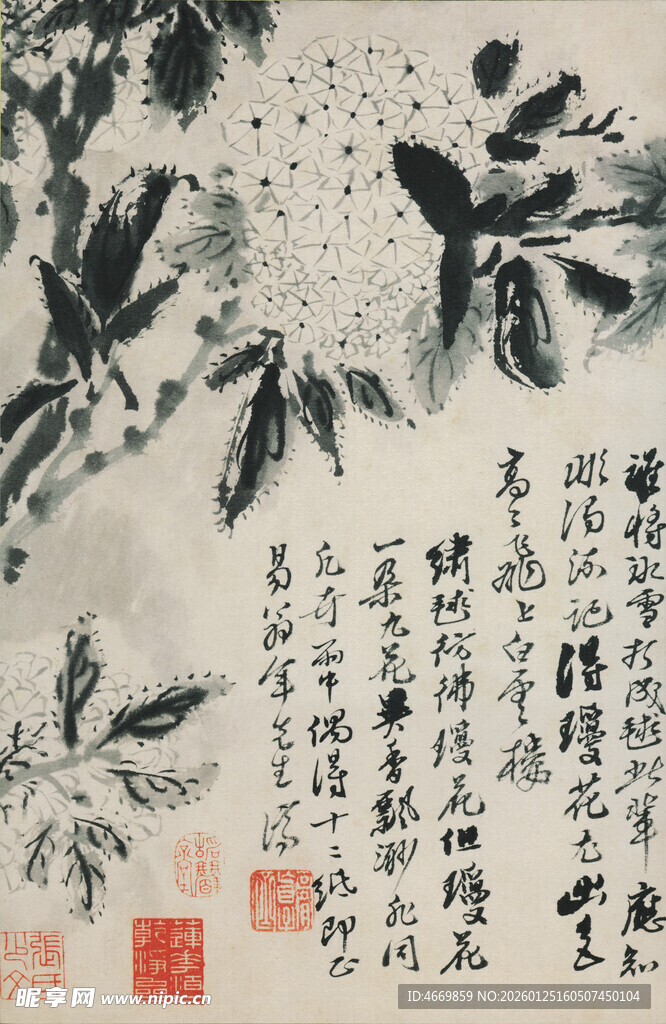 誰將冰雪打成毬此輩應知
記得瓊花
高〻飛上白雲樓
繡毬彷彿瓊花但瓊花
一朵九花異香飄渺非同
凡卉雨中偶得十二紙即正
易翁年先生 濟
昵享网 www.nipic.cn
ID:4669859 NO:20260125160507450104